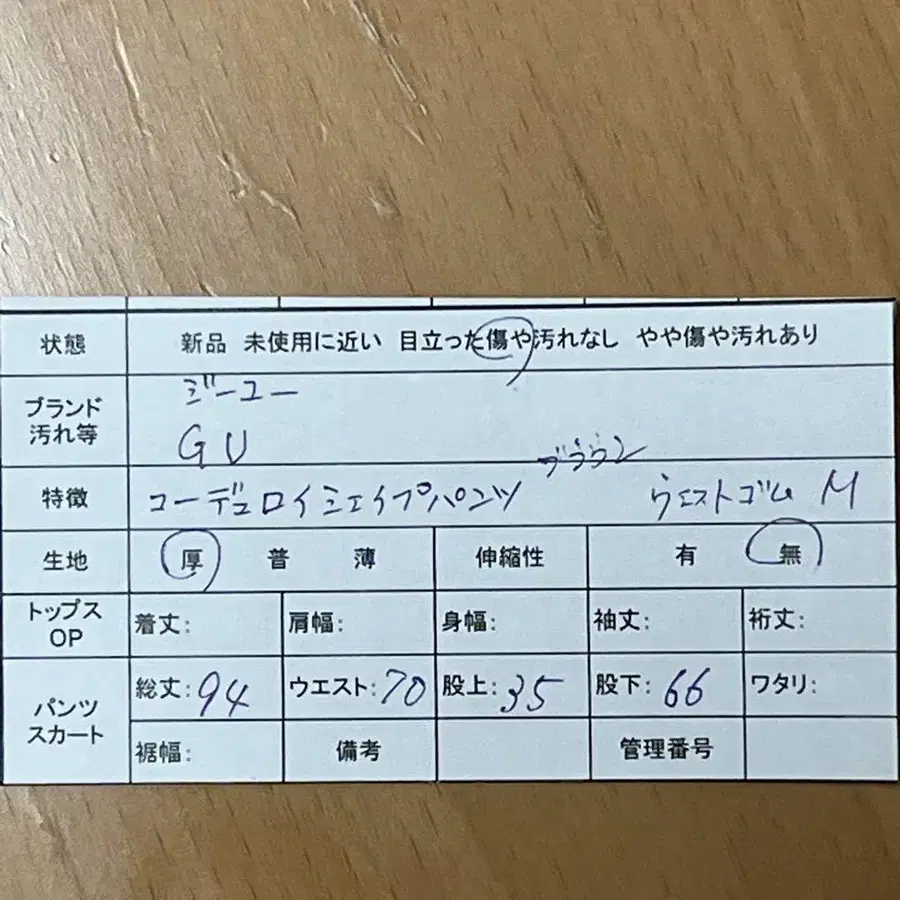 状態 新品 未使用に近い 目立った傷や汚れなし やや傷や汚れあり
ブランド ジーユー
汚れ等 GU
ブラウン
特徴 コーデュロイシェイプパンツ ウエストゴム M
生地 厚 普 薄 伸縮性 有 無
トップス OP 着丈: 肩幅: 身幅: 袖丈: 裄丈:
パンツ スカート 総丈:94 ウエスト:70 股上:35 股下:66 ワタリ:
裾幅: 備考 管理番号